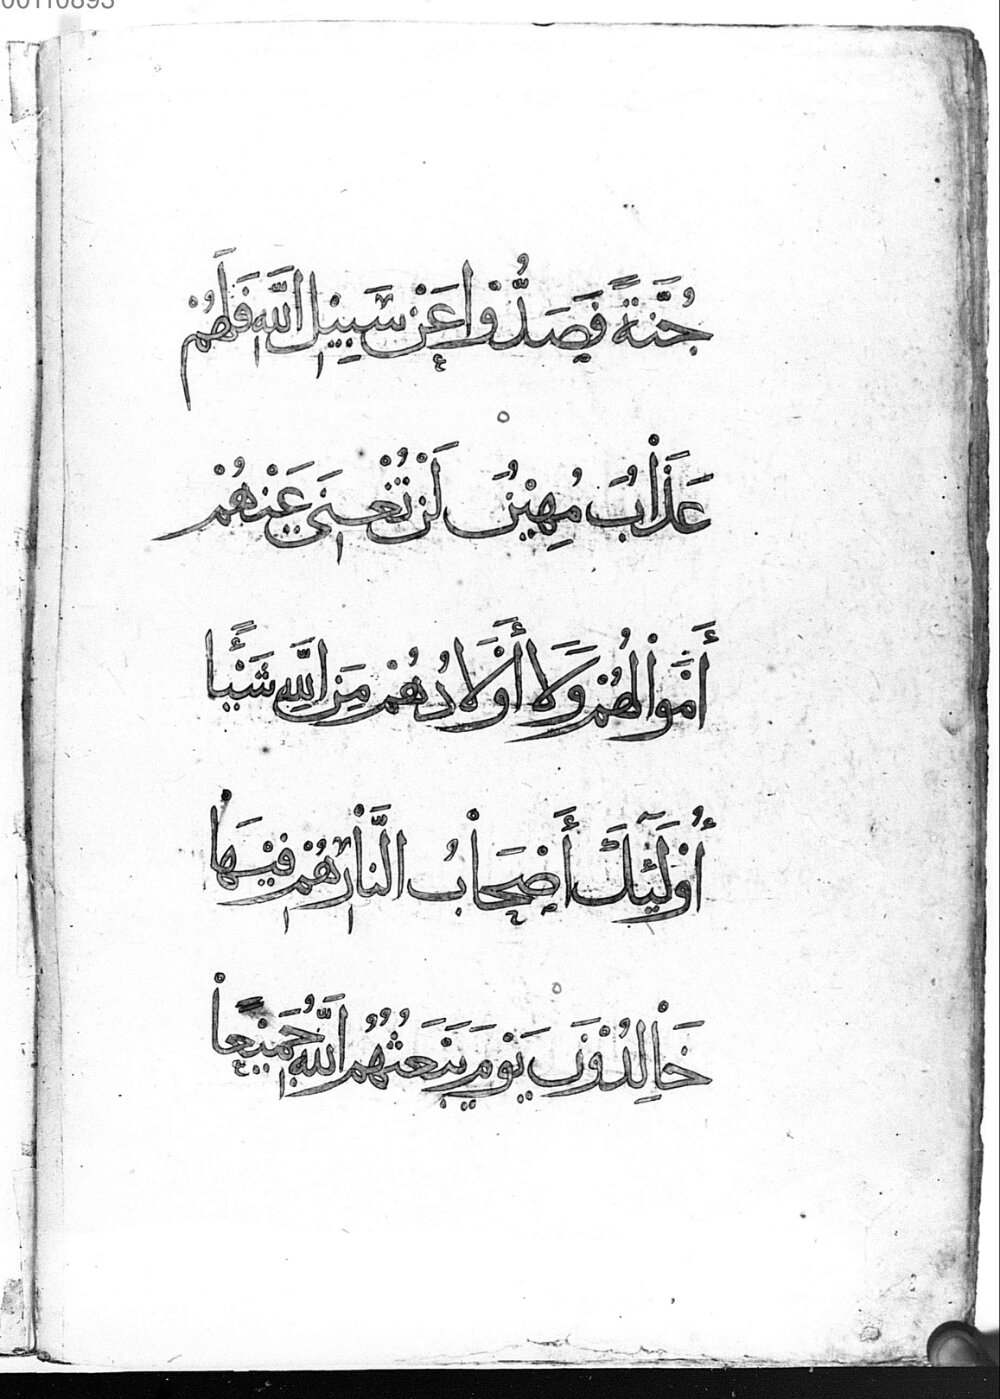 00110893
جُنَّةً فَصَدُّوْا عَنْ سَبِيْلِ اللَّهِ فَلَهُمْ
عَذَابٌ مُهِيْنٌ لَنْ تُغْنِيَ عَنْهُمْ
أَمْوَالُهُمْ وَلَا أَوْلَادُهُمْ مِنَ اللَّهِ شَيْئًا
أُوْلَٰئِكَ أَصْحَابُ النَّارِ هُمْ فِيْهَا
خَالِدُوْنَ يَوْمَ يَبْعَثُهُمُ اللَّهُ جَمِيْعًا